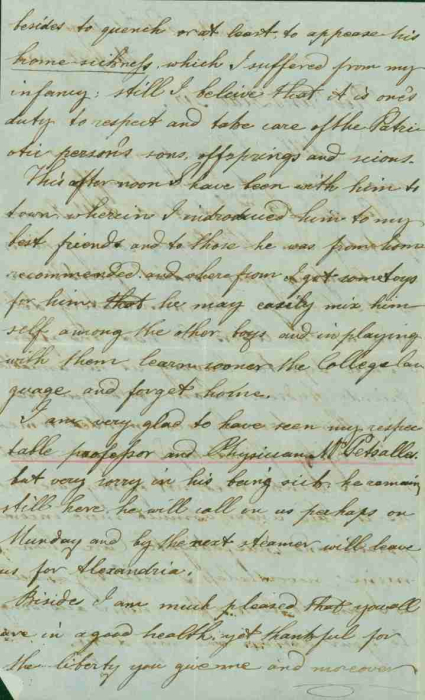 besides to quench or at least to appease his
home-sickness, which I suffered from my
infancy; still I beleive that it is one's
duty to respect and take care of the Patri-
otic person's sons, offsprings and scions.
This afternoon I have been with him to
town, wherein I introduced him to my
best friends and to those he was from home
recommended and wherefrom I got some toys
for him, that he may easily mix him
self among the other boys and in playing
with them learn sooner the College lan
guage and forget home.
I am very glad to have seen my respec
table professor and Physician Mr Petsalles.
but very sorry in his being sick, he remain
still here he will call on us perhaps on
Munday and by the next steamer will leave
us for Alexandria.
Bisides I am much pleased that you all
are in a good health, yet thankful for
the liberty you give me and moreover